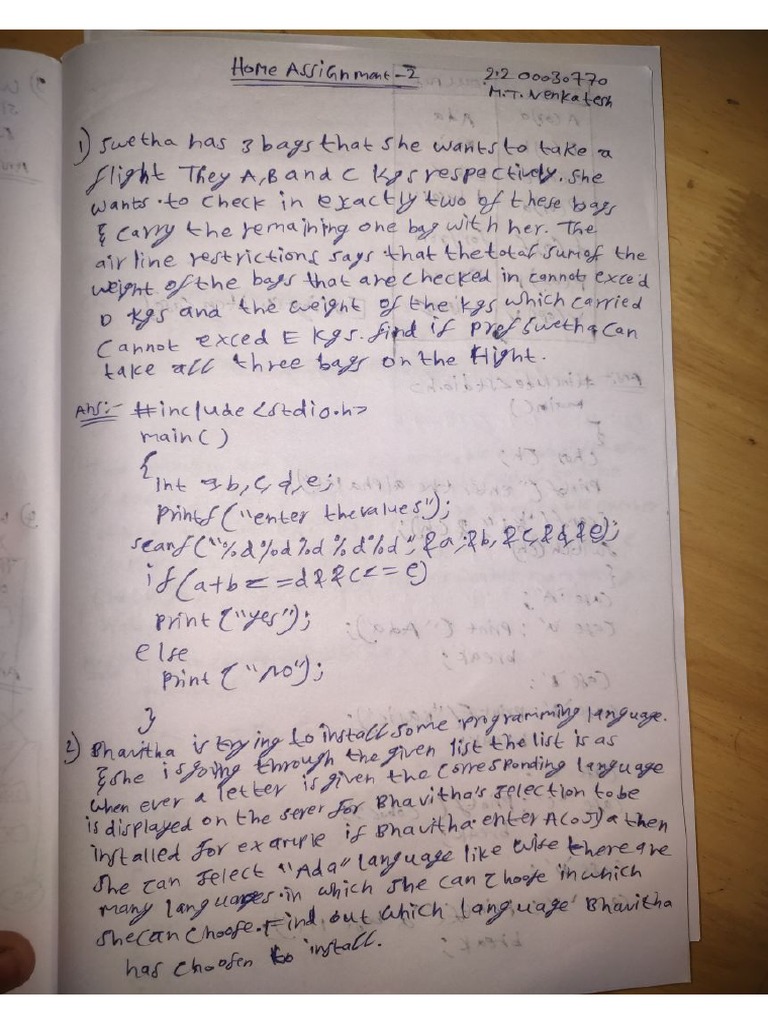 Home Assignment-2
2200030770
M.T. Venkatesh
1) Swetha has 3 bags that she wants to take a
flight They A, B and C Kgs respectively. She
wants to check in exactly two of these bags
& carry the remaining one bag with her. The
airline restrictions says that the total sum of the
weight of the bags that are checked in cannot exced
D kgs and the weight of the kgs which carried
Cannot exced E kgs. find if pref Swetha Can
take all three bags on the flight.
Ans:- #include<stdio.h>
main()
{
int a,b,c,d,e;
printf("enter the values");
scanf("%d%d%d%d%d", &a,&b,&c,&d,&e);
if(a+b<=d&&c<=e)
print("yes");
else
print("No");
}
2) Bhavitha is trying to install some programming language.
& she is going through the given list the list is as
when ever a letter is given the corresponding language
is displayed on the screr for Bhavitha's selection to be
installed for example if Bhavitha enter A(or) a then
she can select "Ada" language like wise there are
many languages in which she can choose in which
she can choose. Find out which language Bhavitha
has choosen to install.